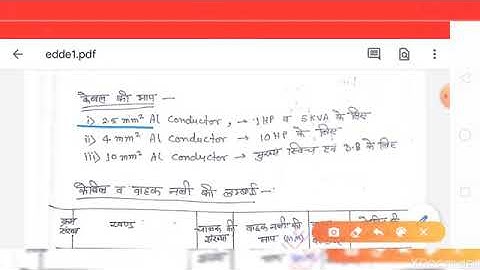 edde1.pdf
केबल की माप —
i) 2.5 mm² Al Conductor, → 1 HP व 5 KVA के लिए
ii) 4 mm² Al conductor → 10 HP के लिए
iii) 10 mm² Al Conductor → मुख्य स्विच एवं D.B के लिए
केबिल व वाहक नली की लम्बाई —
क्रम संख्या खण्ड चालक की संख्या वाहक नली की माप (MM)